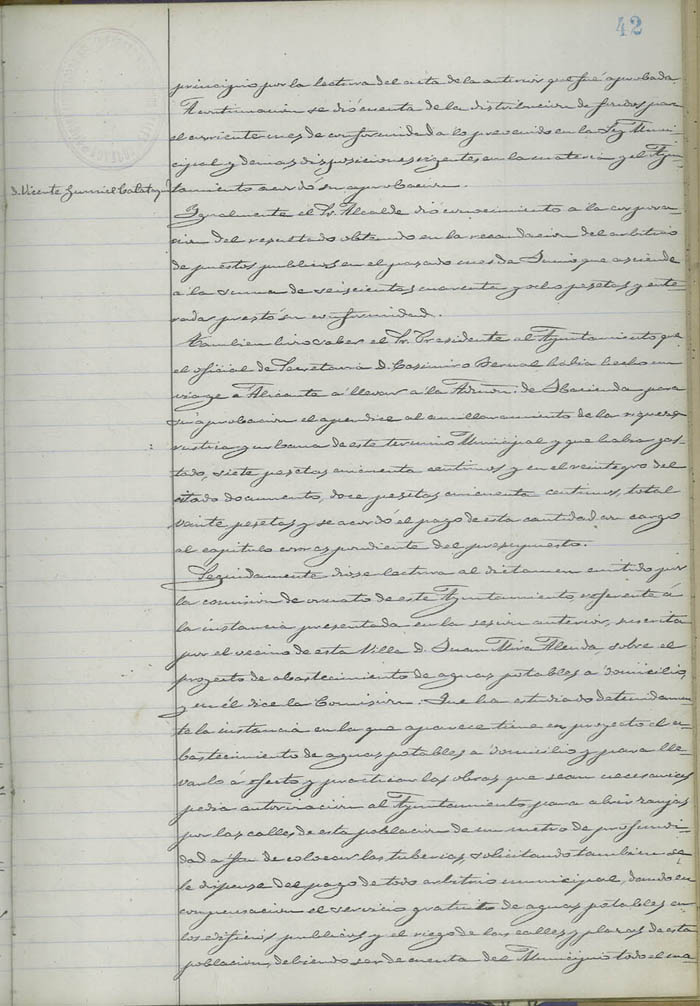 42
principio por la lectura del acta de la anterior que fué aprobada.
A continuacion se dió cuenta de la distribucion de fondos para
el corriente mes de conformidad a lo prevenido en la Ley Muni-
cipal y demas disposiciones vigentes en la materia y el Ayun-
D. Vicente
tamiento acordó su aprobacion.
Igualmente el Sr. Alcalde dió conocimiento a la corpora-
cion del resultado obtenido en la recaudacion del arbitrio
de puestos publicos en el pasado mes de Junio que asciende
á la suma de seiscientas cuarenta y ocho pesetas y ente-
rada prestó su conformidad.
Tambien hizo saber el Sr. Presidente al Ayuntamiento que
el oficial de Secretaria D. Casimiro Bernal habia hecho un
viage á Alicante á llevar á la Admon. de Hacienda para
su aprobacion el apendice al amillaramiento de la riqueza
rustica y urbana de este termino Municipal y que habia gas-
tado, siete pesetas cincuenta centimos y en el reintegro del
citado documento, doce pesetas cincuenta centimos, total
veinte pesetas y se acordó el pago de esta cantidad con cargo
al capitulo correspondiente del presupuesto.
Seguidamente dióse lectura al dictamen emitido por
la comision de ornato de este Ayuntamiento, referente á
la instancia presentada en la sesion anterior, suscrita
por el vecino de esta Villa D. Juan Mira Alenda, sobre el
proyecto de abastecimiento de aguas potables á domicilio,
y en él dice la Comision: Que ha estudiado detenidamen-
te la instancia en la que aparece tiene en proyecto el a-
bastecimiento de aguas potables a domicilio y para lle-
varlo á efecto y practicar las obras que sean necesarias
pedia autorizacion al Ayuntamiento para abrir zanjas
por las calles de esta poblacion de un metro de profundi-
dad a fin de colocar las tuberias, solicitando tambien se
le dispense del pago de todo arbitrio municipal, dando en
compensacion el servicio gratuito de aguas potables en
los edificios publicos y el riego de las calles y plazas de esta
poblacion, debiendo ser de cuenta del Municipio todo el ma-